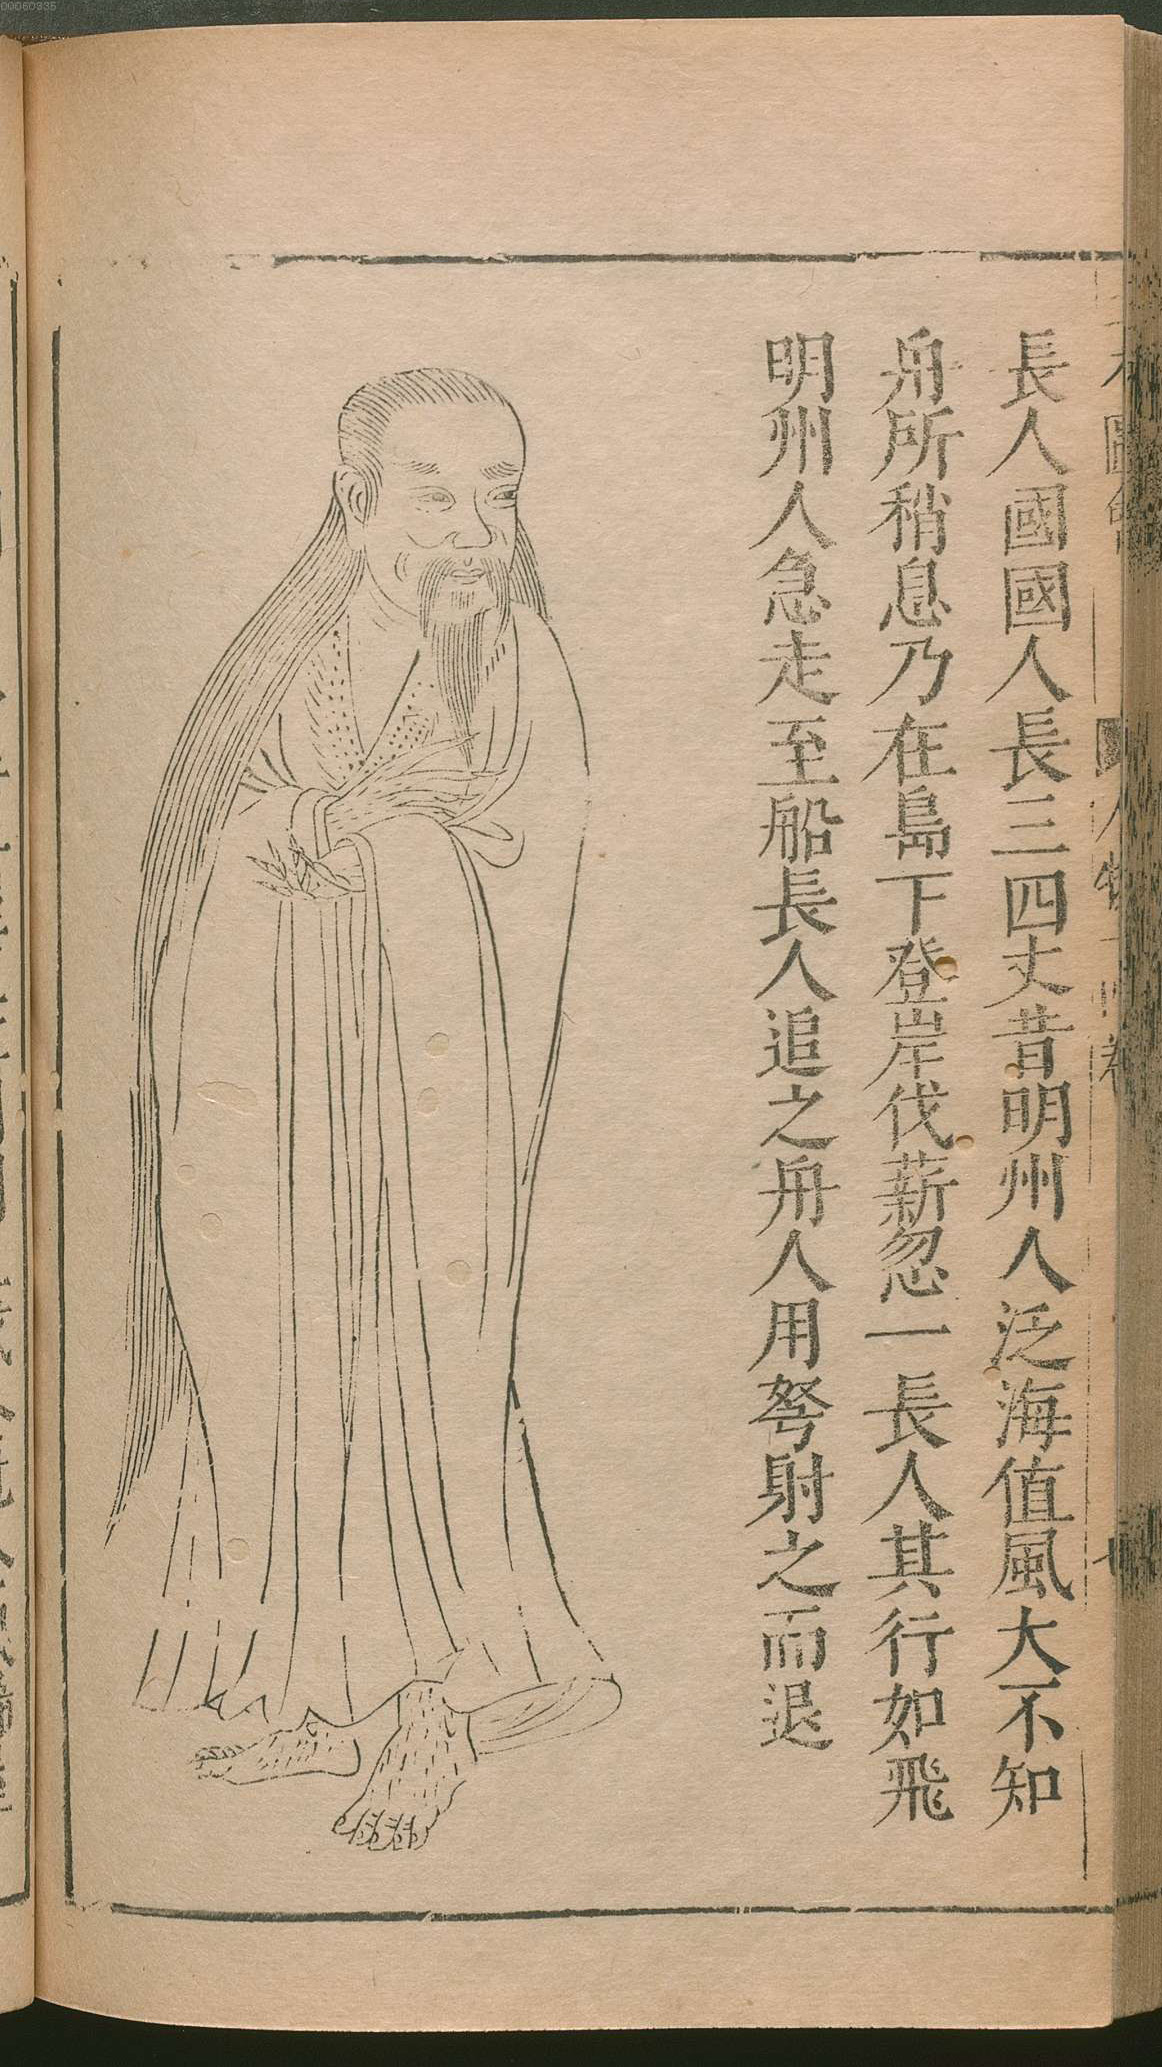 長人國國人長三四丈昔明州人泛海值風大不知
舟所稍息乃在島下登岸伐薪忽一長人其行如飛
明州人急走至船長人追之舟人用弩射之而退
00060335